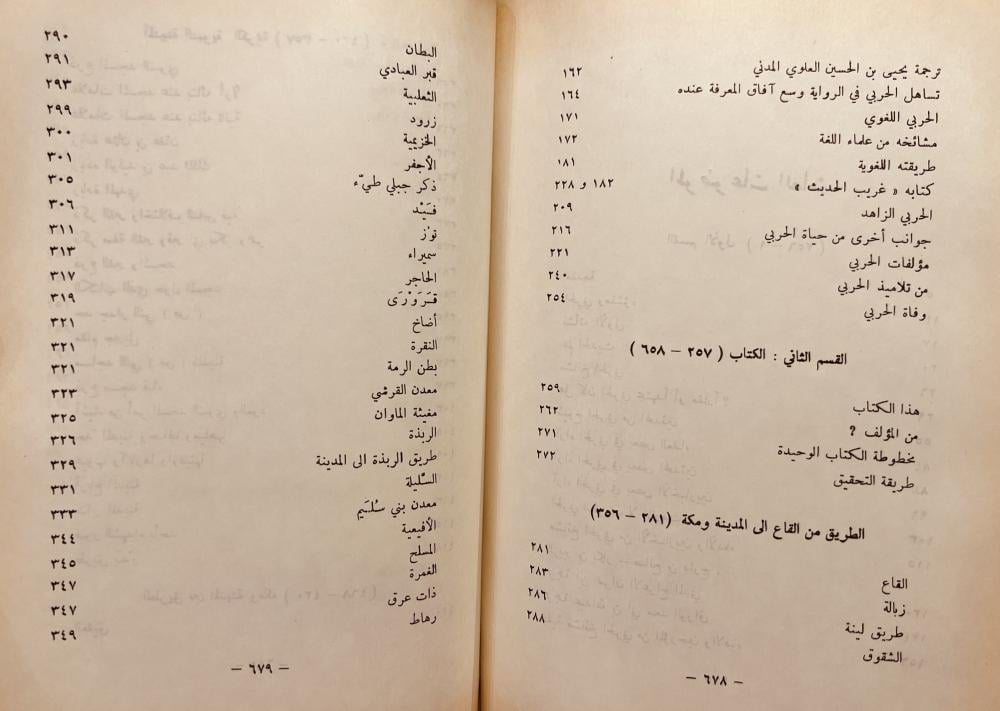 ترجمة يحيى بن الحسين العلوي المدني ١٦٢
تساهل الحربي في الرواية وسع آفاق المعرفة عنده ١٦٤
الحربي اللغوي ١٧١
مشائخه من علماء اللغة ١٧٢
طريقته اللغوية ١٨١
كتابه « غريب الحديث » ١٨٢ و ٢٢٨
الحربي الزاهد ٢٠٩
جوانب أخرى من حياة الحربي ٢١٦
مؤلفات الحربي ٢٢١
من تلاميذ الحربي ٢٤٠
وفاة الحربي ٢٥٤
القسم الثاني : الكتاب ( ٢٥٧ – ٦٥٨ )
هذا الكتاب ٢٥٩
من المؤلف ؟ ٢٦٢
مخطوطة الكتاب الوحيدة ٢٧١
طريقة التحقيق ٢٧٢
الطريق من القاع الى المدينة ومكة (٢٨١ – ٣٥٦)
القاع ٢٨١
زبالة ٢٨٣
طريق لينة ٢٨٦
الشقوق ٢٨٨
– ٦٧٨ –
البطان ٢٩٠
قبر العبادي ٢٩١
الثعلبية ٢٩٣
زرود ٢٩٩
الخزيمية ٣٠٠
الأجفر ٣٠١
ذكر جبلي طيّء ٣٠٥
فَيْد ٣٠٦
توز ٣١١
سميراء ٣١٣
الحاجر ٣١٧
قَرَوْرَى ٣١٩
أضاخ ٣٢١
النقرة ٣٢١
بطن الرمة ٣٢١
معدن القرشي ٣٢٣
مغيثة الماوان ٣٢٥
الربذة ٣٢٦
طريق الربذة الى المدينة ٣٢٩
السَّليلة ٣٣١
معدن بني سُلَيم ٣٣٣
الأفيعية ٣٤٤
المسلح ٣٤٥
الغمرة ٣٤٧
ذات عرق ٣٤٧
رهاط ٣٤٩
– ٦٧٩ –